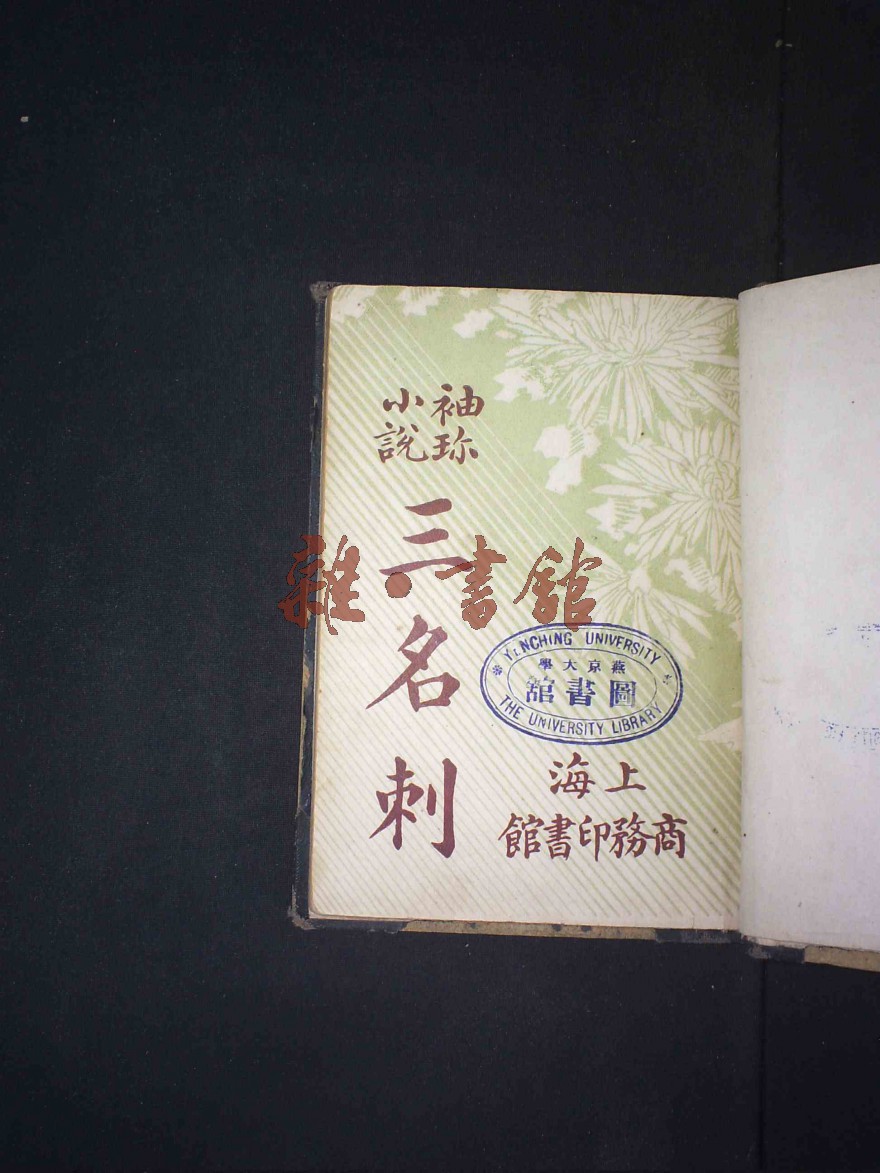 袖珍
小說
三名刺
上海
商務印書館
YENCHING UNIVERSITY
燕京大學
圖書館
THE UNIVERSITY LIBRARY
雜·書館